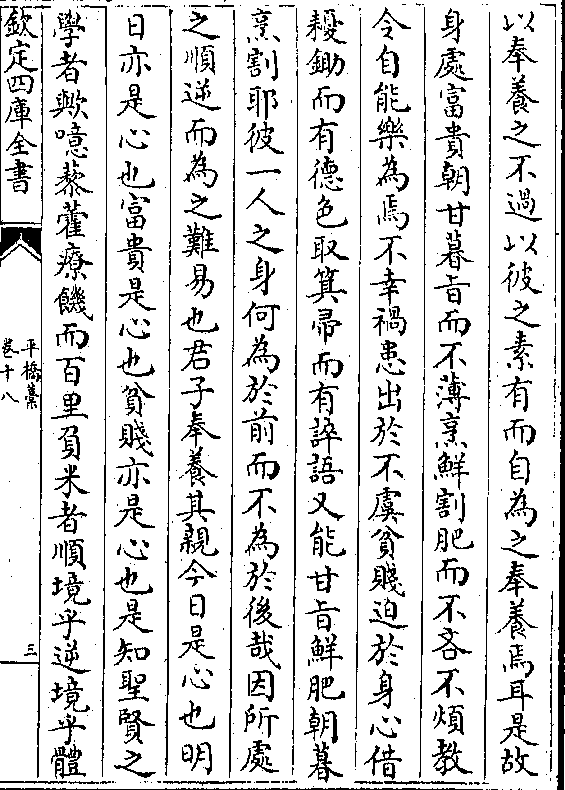 以奉養之不過以彼之素有而自為之奉養焉耳是故
身處富貴朝甘暮旨而不薄烹鮮割肥而不吝不煩教
令自能樂為焉不幸禍患出於不虞貧賤迫於身心借
耰鋤而有德色取箕帚而有誶語又能甘旨鮮肥朝暮
烹割耶彼一人之身何為於前而不為於後哉因所處
之順逆而為之難易也君子奉養其親今日是心也明
日亦是心也富貴是心也貧賤亦是心也是知聖賢之
學者歟噫藜藿療饑而百里負米者順境乎逆境乎體
欽定四庫全書
平橋藁
卷十八
三